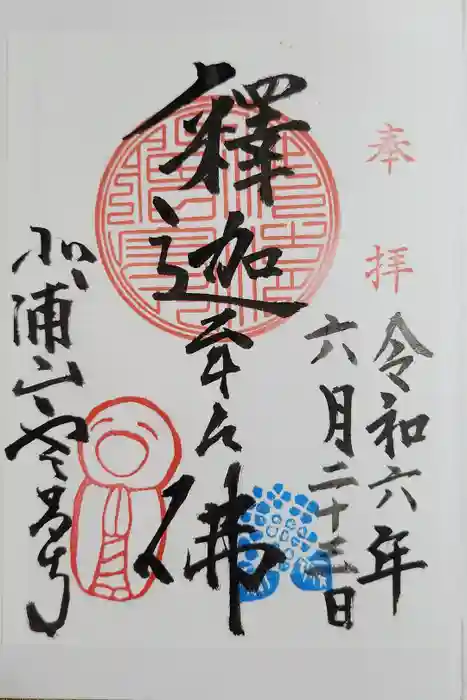 奉拝
令和六年
六月二十三日
釋迦牟尼佛
北浦山雲昌寺